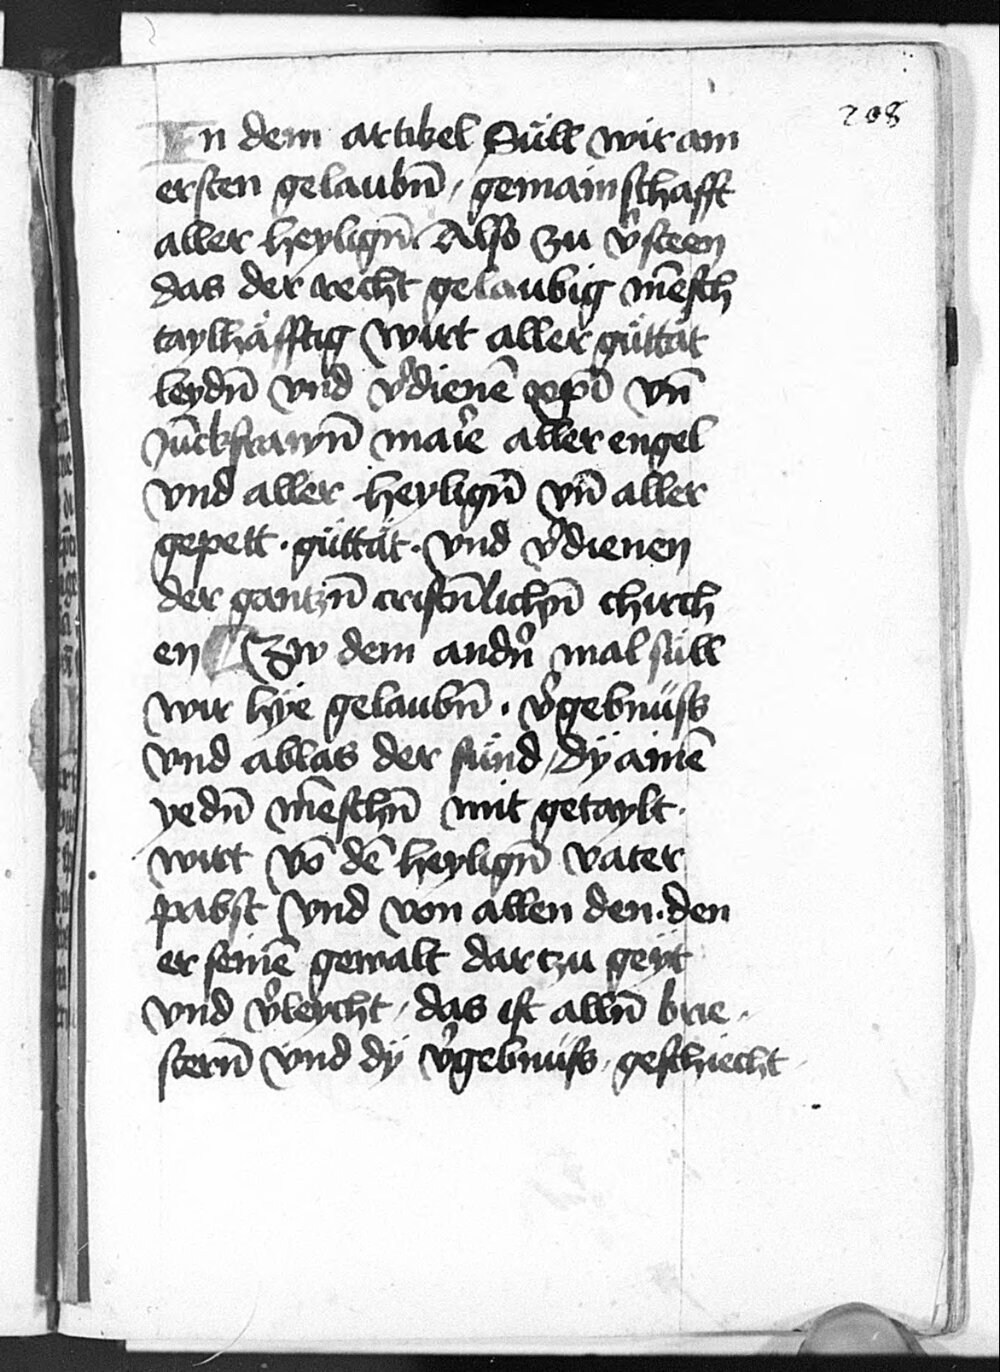 208
In dem artikel Süll wir am
ersten gelaubn̄ / gemainschafft
aller heylign̄. Also zu v̉steen
das der recht gelaubig mēsch
taylhäfftig wirt aller güttät
leydn̄ vnd v̉dienē xp̄i vn̄
Jūckfrawn̄ mar̉ie aller engel
vnd aller heylign̄ vn̄ aller
gepett · güttät · vnd v̉dienen
der gantzn̄ cristn̄lichn̄ chirch
en Zw dem andn̉ mal süll
wir hye gelaubn̄ · v̉gebnüss
vnd ablas der sünd / dÿ ainē
yedn̄ mēschn̄ mit getaylt ·
wirt vō dē heylign̄ vater
pabst vnd von allen den · den
er seinē gewalt dar tzu geÿt
vnd v̉leycht / das ist alln̄ brie
stern̄ vnd dÿ v̉gebnüss / geschiecht